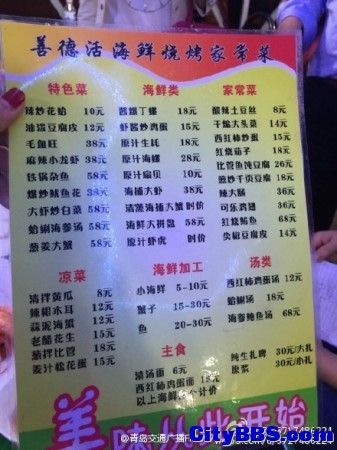 善德活海鲜烧烤家常菜
特色菜
辣炒花蛤 10元
油淋豆腐皮 12元
毛血旺 38元
麻辣小龙虾 38元
铁锅杂鱼 58元
爆炒鱿鱼花 38元
大虾炒白菜 58元
蛤蜊海参汤 58元
葱姜大蟹 58元
海鲜类
酱爆丁螺 18元
虾酱炒鸡蛋 18元
原汁生耗 18元
原汁海螺 28元
原汁扇贝 18元
海捕大虾 38元
清蒸海捕大蟹 时价
海鲜大拼盘 58元
原汁虾虎 时价
家常菜
酸辣土豆丝 8元
干煸大头菜 14元
西红柿炒蛋 18元
红烧茄子 18元
比管鱼炖豆腐 26元
炒千页豆腐 18元
辣大肠 36元
可乐鸡翅 36元
红烧鲅鱼 68元
尖椒豆腐皮 14元
凉菜
清拌黄瓜 8元
辣椒木耳 12元
蒜泥海蜇 12元
老醋花生 12元
葱拌比管 18元
姜汁松花蛋 18元
海鲜加工
小海鲜 5-10元
蟹子 15-30元
鱼 20-30元
汤类
西红柿鸡蛋汤 12元
蛤蜊汤 18元
海参炖鱼汤 68元
主食
清汤面 6元
西红柿鸡蛋面 18元
以上海鲜 个计价
纯生扎啤 30元/大扎
原浆 30元/小扎
美味从此开始
@青岛交通广播
5717486224
CityBBS.com